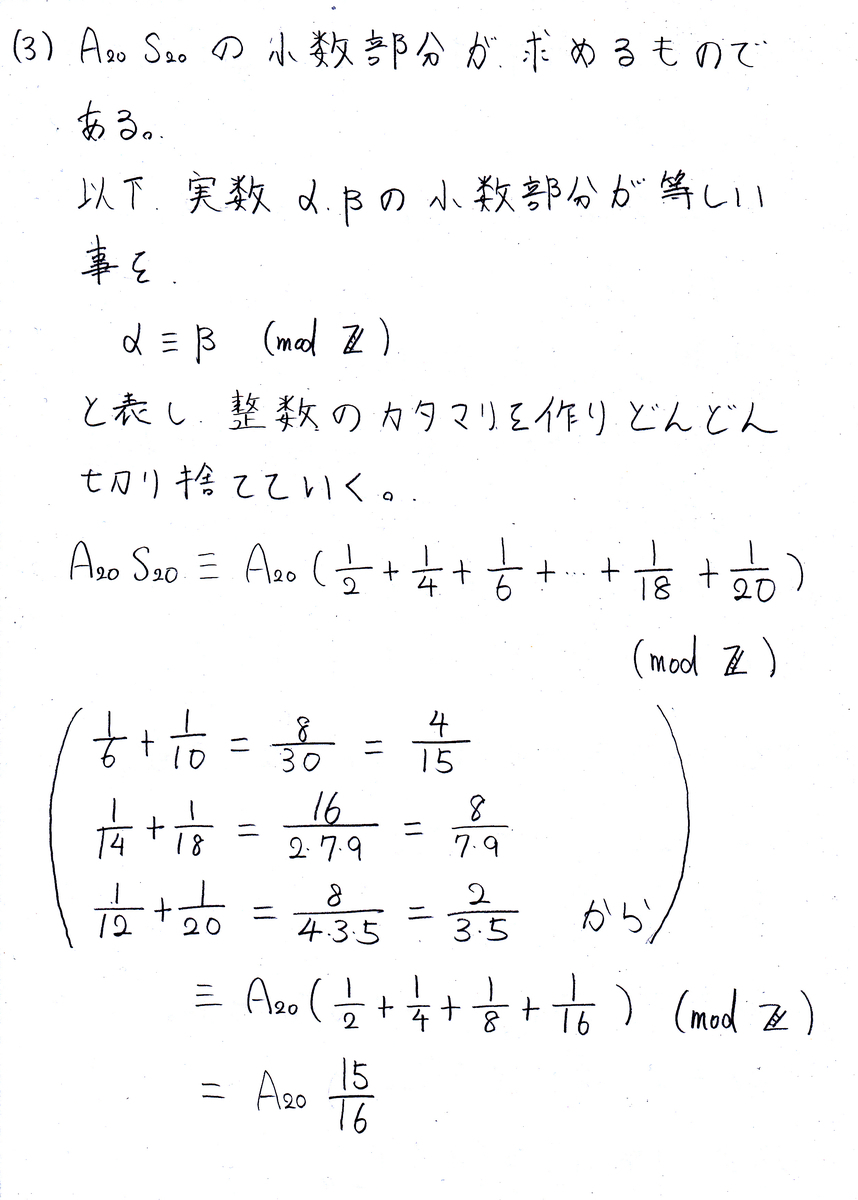 (3) A₂₀ S₂₀ の小数部分が求めるもので
ある。
以下.実数 α.βの小数部分が等しい
事を.
α ≡ β (mod ℤ)
と表し.整数のカタマリを作りどんどん
切り捨てていく。
A₂₀ S₂₀ ≡ A₂₀ ( 1/2 + 1/4 + 1/6 + … + 1/18 + 1/20 )
(mod ℤ)
1/6 + 1/10 = 8/30 = 4/15
1/14 + 1/18 = 16/2·7·9 = 8/7·9
1/12 + 1/20 = 8/4·3·5 = 2/3·5 から
≡ A₂₀ ( 1/2 + 1/4 + 1/8 + 1/16 ) (mod ℤ)
= A₂₀ 15/16